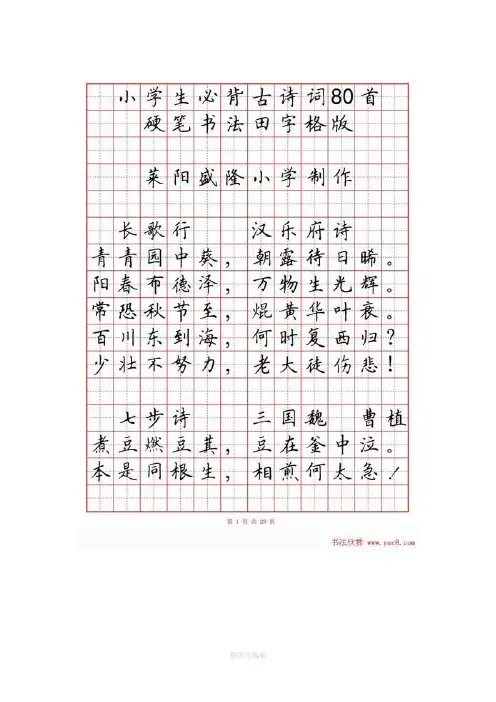 小学生必背古诗词80首
硬笔书法田字格版
莱阳盛隆小学制作
长歌行 汉乐府诗
青青园中葵，朝露待日晞。
阳春布德泽，万物生光辉。
常恐秋节至，焜黄华叶衰。
百川东到海，何时复西归？
少壮不努力，老大徒伤悲！
七步诗 三国魏 曹植
煮豆燃豆萁，豆在釜中泣。
本是同根生，相煎何太急！
第 1 页 共 28 页
书法欣赏 www.yac8.com
整理可编辑